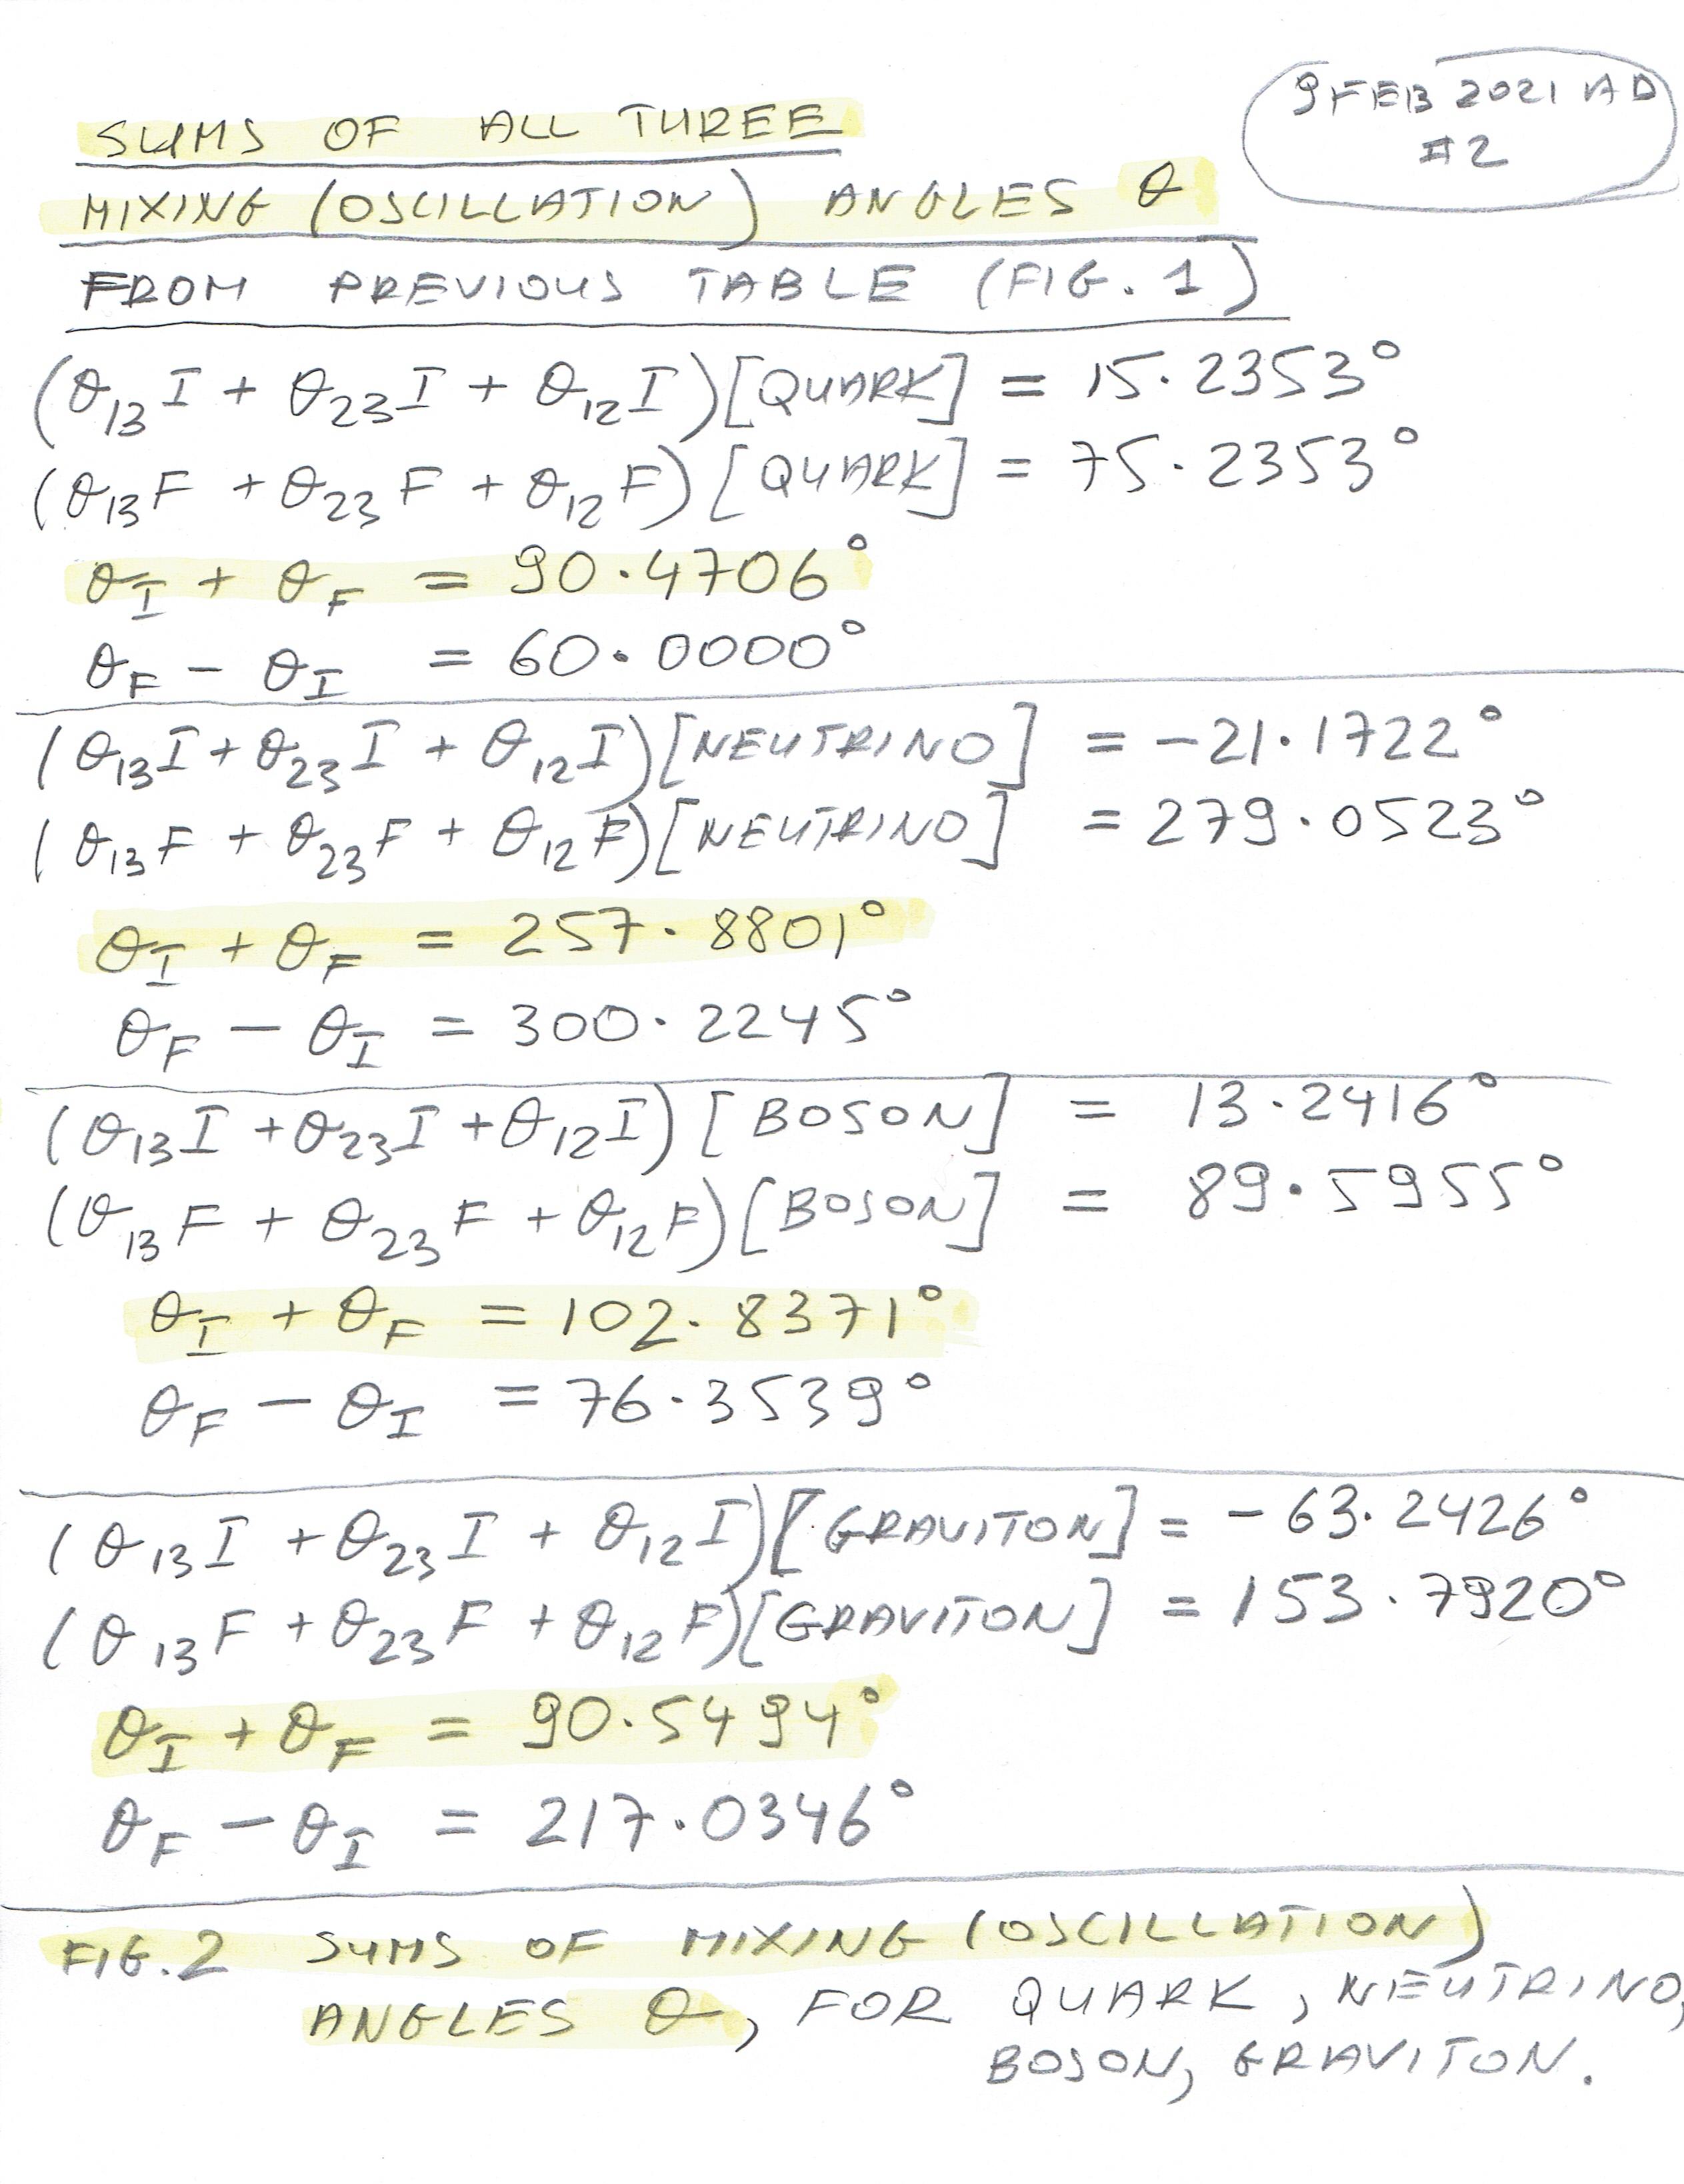 9 FEB 2021 AD
#2
SUMS OF ALL THREE
MIXING (OSCILLATION) ANGLES θ
FROM PREVIOUS TABLE (FIG. 1)
(θ₁₃I + θ₂₃I + θ₁₂I)[QUARK] = 15.2353°
(θ₁₃F + θ₂₃F + θ₁₂F)[QUARK] = 75.2353°
θ_I + θ_F = 90.4706°
θ_F - θ_I = 60.0000°
(θ₁₃I + θ₂₃I + θ₁₂I)[NEUTRINO] = -21.1722°
(θ₁₃F + θ₂₃F + θ₁₂F)[NEUTRINO] = 279.0523°
θ_I + θ_F = 257.8801°
θ_F - θ_I = 300.2245°
(θ₁₃I + θ₂₃I + θ₁₂I)[BOSON] = 13.2416°
(θ₁₃F + θ₂₃F + θ₁₂F)[BOSON] = 89.5955°
θ_I + θ_F = 102.8371°
θ_F - θ_I = 76.3539°
(θ₁₃I + θ₂₃I + θ₁₂I)[GRAVITON] = -63.2426°
(θ₁₃F + θ₂₃F + θ₁₂F)[GRAVITON] = 153.7920°
θ_I + θ_F = 90.5494°
θ_F - θ_I = 217.0346°
FIG. 2 SUMS OF MIXING (OSCILLATION)
ANGLES θ, FOR QUARK, NEUTRINO,
BOSON, GRAVITON.